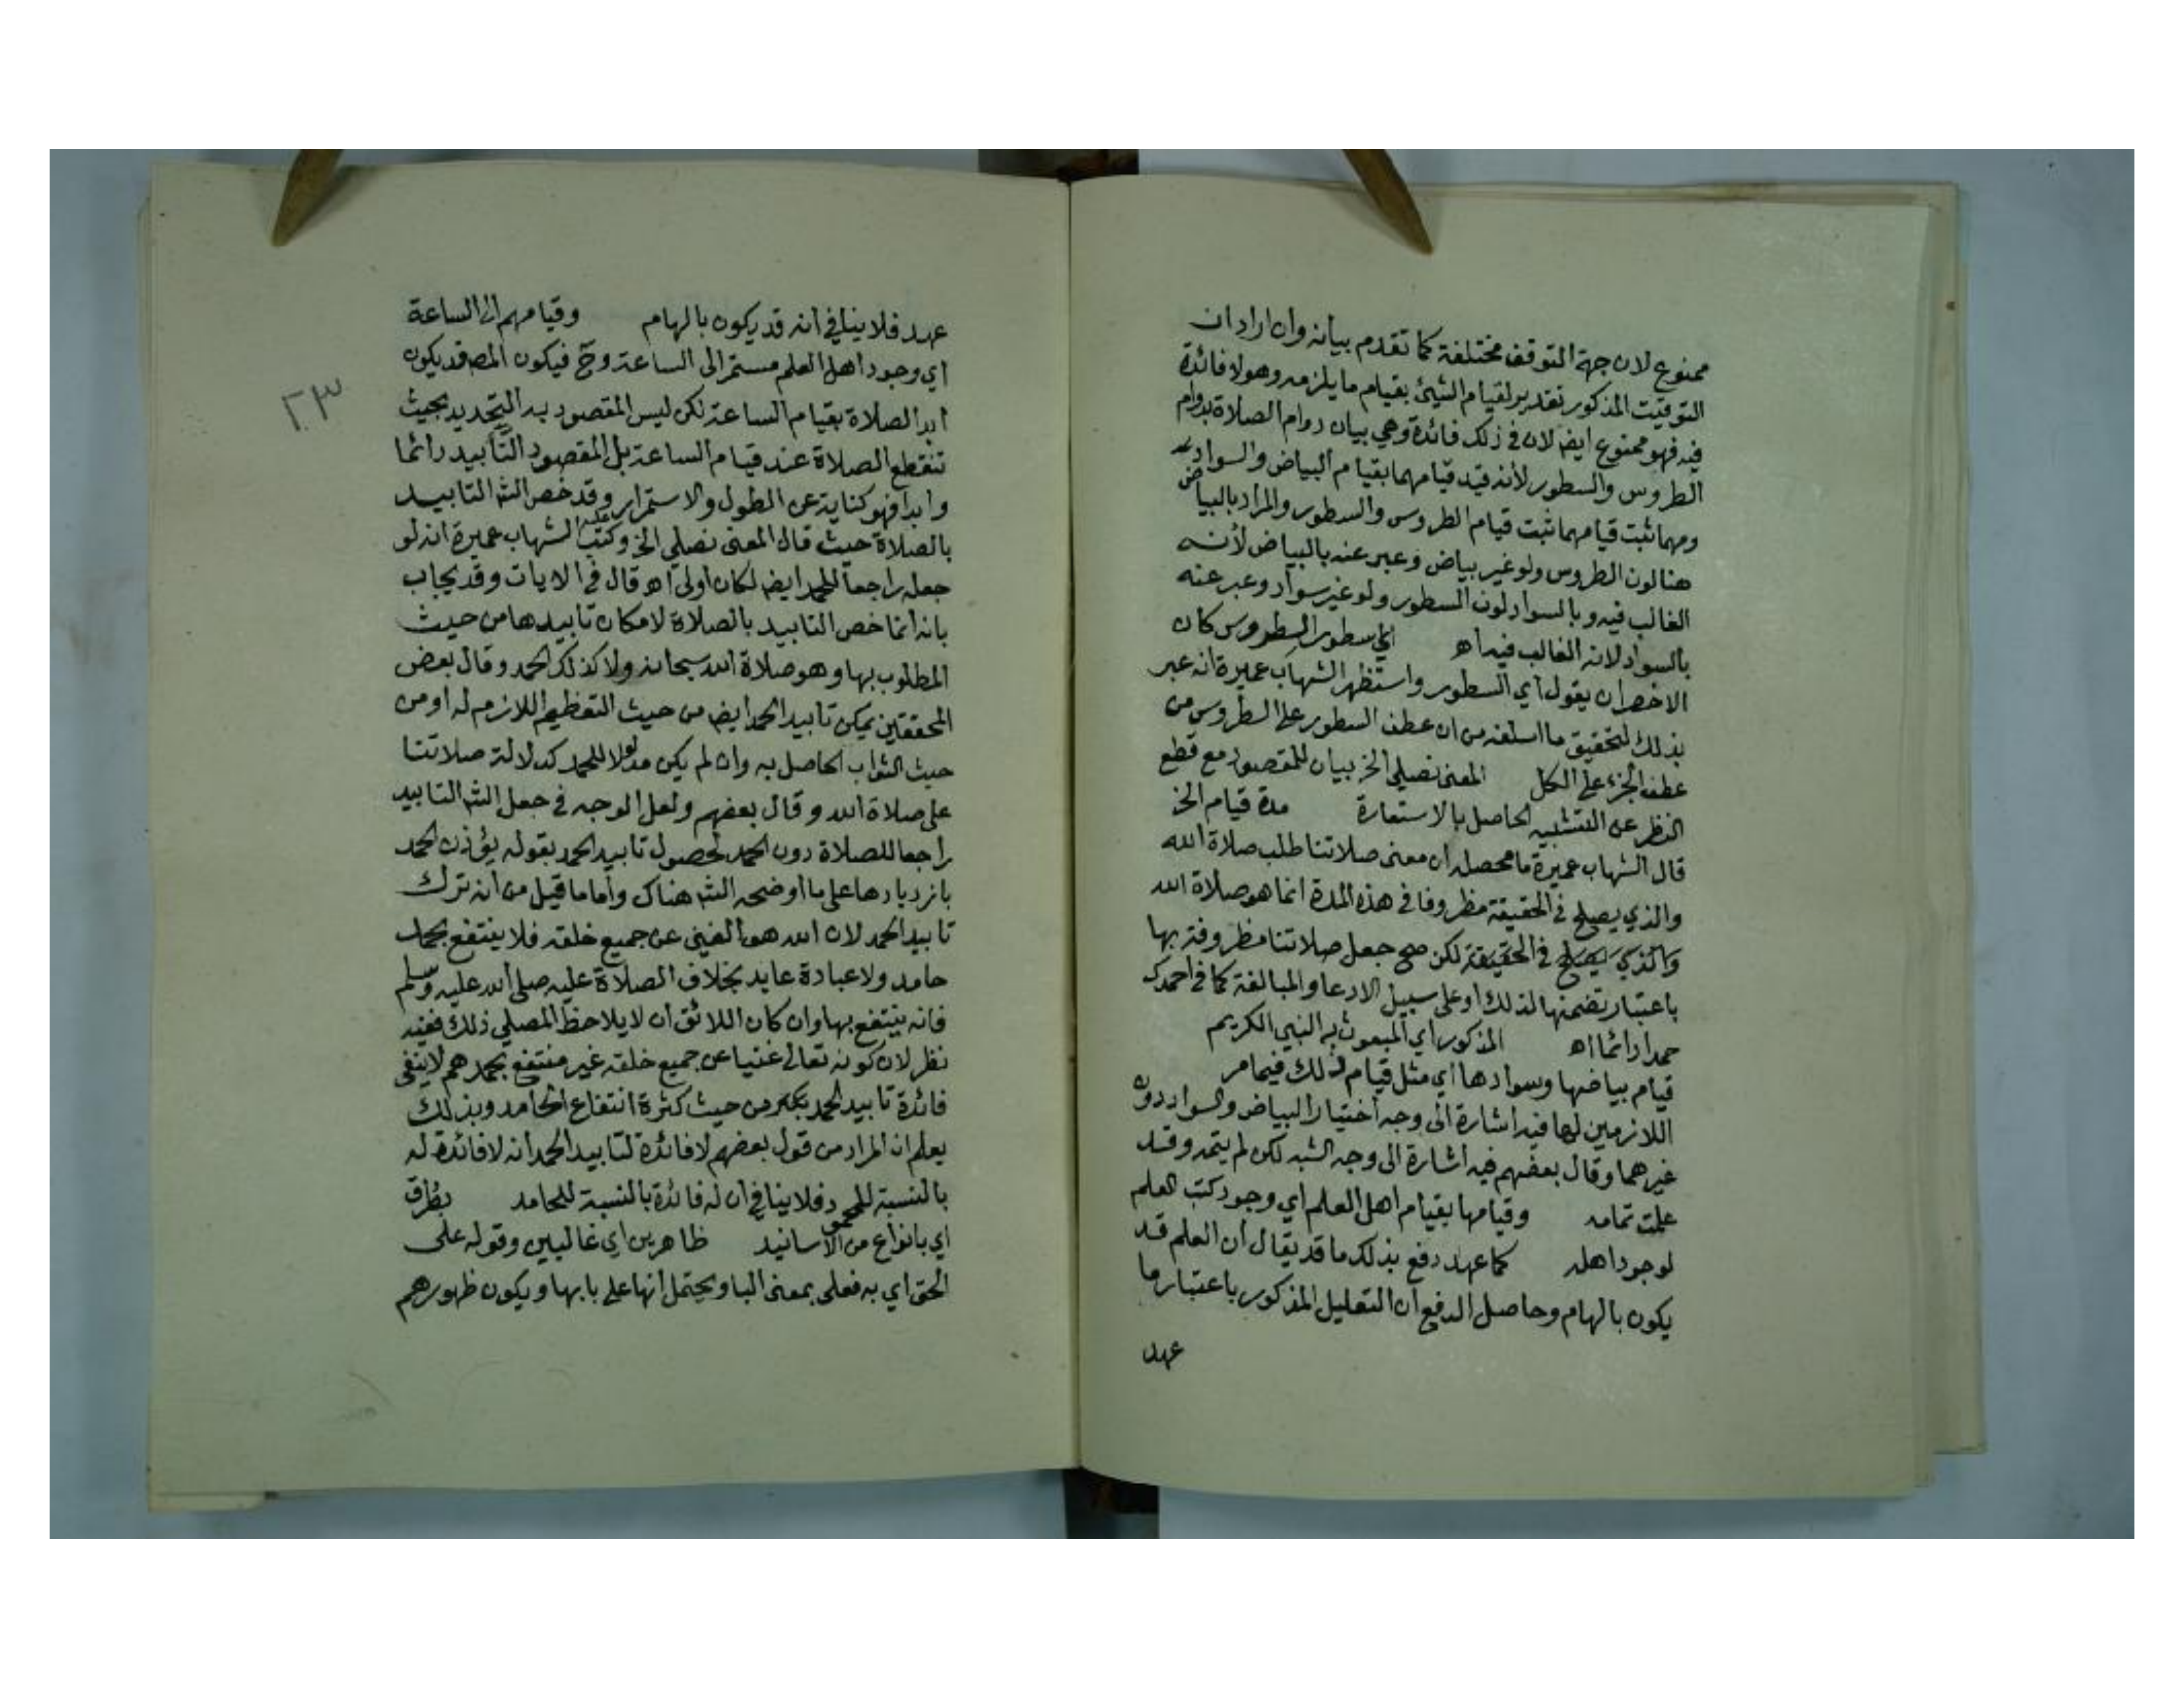 ممنوع لان جهة التوقف مختلفة كما تقدم بيانه وان اراد ان
التوقيت المذكور تقدير لقيام الشيئ بقيام ما يلزمه وهو لا فائدة
فيه فهو ممنوع ايضا لان في ذلك فائدة وهي بيان دوام الصلاة بدوام
الطروس والسطور لأنه قيد قيامهما بقيام البياض والسواد
ومهما ثبت قيامهما ثبت قيام الطروس والسطور والمراد بالبياض
هنا لون الطروس ولو غير بياض وعبر عنه بالبياض لأنه
الغالب فيه وبالسواد لون السطور ولو غير سواد وعبر عنه
بالسواد لانه الغالب فيه اهـ اي سطور الطروس كان
الاخصر ان يقول اي السطور واستظهر الشهاب عميرة انه عبر
بذلك لتحقيق ما اسلفه من ان عطف السطور على الطروس من
عطف الجزء على الكل المعنى نصلي الخ بيان للمقصود مع قطع
النظر عن التشبيه الحاصل بالاستعارة مدة قيام الخ
قال الشهاب عميرة ما محصله ان معنى صلاتنا طلب صلاة الله
والذي يصلح في الحقيقة مظروفا في هذه المدة انما هو صلاة الله
والذي يصلح في الحقيقة لكن صح جعل صلاتنا مظروفة بها
باعتبار تضمنها لذلك او على سبيل الادعا والمبالغة كما في احمدك
حمدا دائما اهـ المذكور اي المبعوث به النبي الكريم
قيام بياضها وسوادها اي مثل قيام ذلك فيما مر
اللازمين لها فيه اشارة الى وجه اختيار البياض والسواد دون
غيرهما وقال بعضهم فيه اشارة الى وجه الشبه لكن لم يتمه وقد
علمت تمامه وقيامها بقيام اهل العلم اي وجود كتب العلم
لوجود اهله كما عهد دفع بذلك ما قد يقال ان العلم قد
يكون بالهام وحاصل الدفع ان التعليل المذكور باعتبار ما
عهد
عهد فلا ينافي انه قد يكون بالهام وقيامهم الى الساعة
اي وجود اهل العلم مستمر الى الساعة وح فيكون المص قد يكون
ابد الصلاة بقيام الساعة لكن ليس المقصود به التحديد بحيث
تنقطع الصلاة عند قيام الساعة بل المقصود التأبيد دائما
وابدا فهو كناية عن الطول والاستمرار وقد خص الش التابيد
بالصلاة حيث قال المعنى نصلي الخ وكتب عليه الشهاب عميرة انه لو
جعله راجعا للحمد ايضا لكان اولى اهـ قال في الايات وقد يجاب
بانه انما خص التابيد بالصلاة لامكان تابيدها من حيث
المطلوب بها وهو صلاة الله سبحانه ولا كذلك الحمد وقال بعض
المحققين يمكن تابيد الحمد ايضا من حيث التعظيم اللازم له او من
حيث الثواب الحاصل به وان لم يكن مدلولا للحمد كدلالة صلاتنا
على صلاة الله وقال بعضهم ولعل الوجه في جعل الش التابيد
راجعا للصلاة دون الحمد لحصول تابيد الحمد بقوله يؤذن الحمد
بازديادها على ما اوضحه الش هناك واما ما قيل من أنه ترك
تابيد الحمد لان الله هو الغني عن جميع خلقه فلا ينتفع بحمد
حامد ولا عبادة عابد بخلاف الصلاة عليه صلى الله عليه وسلم
فانه ينتفع بها وان كان اللائق ان لا يلاحظ المصلي ذلك ففيه
نظر لان كونه تعالى غنيا عن جميع خلقه غير منتفع بحمدهم لا ينفى
فائدة تابيد الحمد من حيث كثرة انتفاع الحامد وبذلك
يعلم ان المراد من قول بعضهم لا فائدة لتابيد الحمد انه لا فائدة له
بالنسبة للمحمود فلا ينافي ان له فائدة بالنسبة للحامد بطرق
اي بانواع من الاسانيد ظاهرين اي غالبين وقوله على
الحق اي به فعلى بمعنى البا ويحتمل انها على بابها ويكون ظهورهم
٢٣